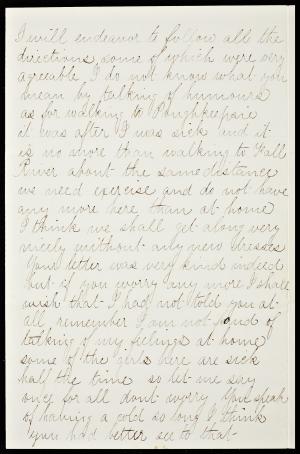 I will endeavor to follow all the
directions, some of which were very
agreeable. I do not know what you
mean by talking of humours
as for walking to Poughkeepsie
it was after I was sick and it
is no more than walking to Fall
River about the same distance
we need exercise and do not have
any more here than at home
I think we shall get along very
nicely without any new dresses
Your letter was very kind indeed
but if you worry any more I shall
wish that I had not told you at
all, remember I am not fond of
talking of my feelings at home
some of the girls here are sick
half the time so let me say
once for all dont worry. You speak
of having a cold so long I think
you had better see to that